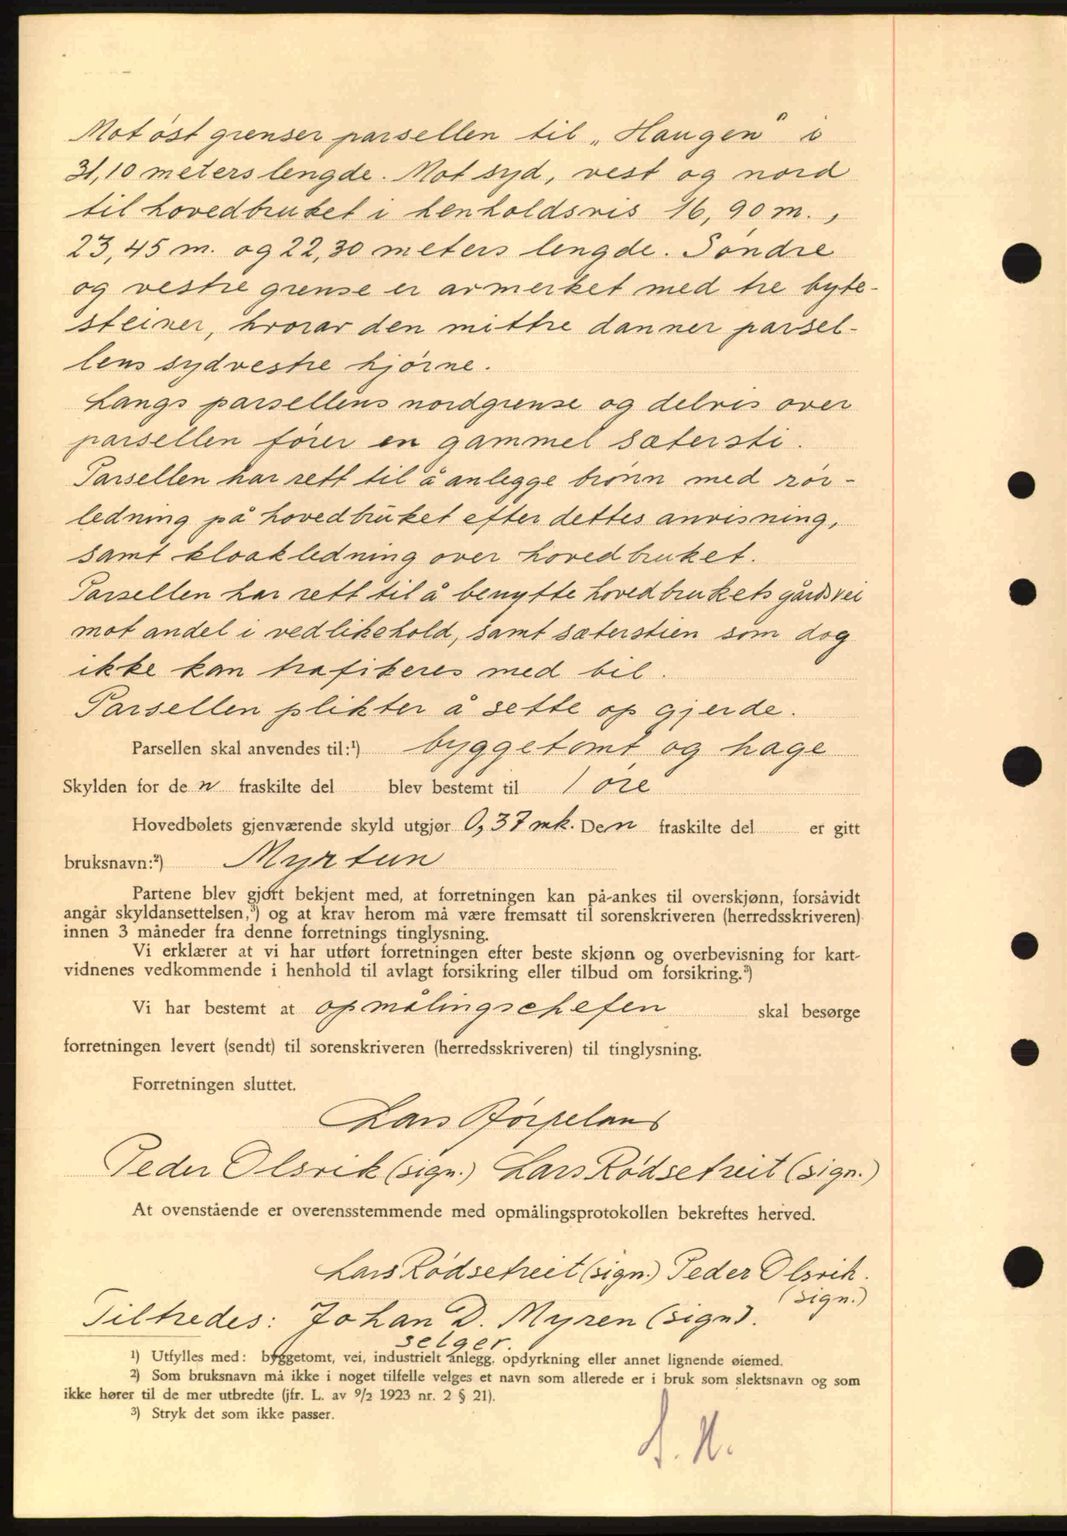 Mot öst grenser parsellen til „Haugen“ i
31,10 meters lengde. Mot syd, vest og nord
til hovedbruket i henholdsvis 16,90 m.,
23,45 m. og 22,30 meters lengde. Søndre
og vestre grense er avmerket med tre byte-
steiner, hvorav den mittre danner parsel-
lens sydvestre hjörne.
Langs parsellens nordgrense og delvis over
parsellen förer en gammel sætersti.
Parsellen har rett til å anlegge brönn med rör-
ledning på hovedbruket efter dettes anvisning,
samt kloakledning over hovedbruket.
Parsellen har rett til å benytte hovedbrukets gårdsvei
mot andel i vedlikehold, samt sæterstien som dog
ikke kan trafikeres med bil.
Parsellen plikter å sette op gjerde.
Parsellen skal anvendes til:¹) byggetomt og hage
Skylden for de n fraskilte del blev bestemt til 1 öre
Hovedbølets gjenværende skyld utgjør 0,37 mk. Den fraskilte del er gitt
bruksnavn:²) Myrtun
Partene blev gjort bekjent med, at forretningen kan på-ankes til overskjønn, forsåvidt
angår skyldansettelsen,³) og at krav herom må være fremsatt til sorenskriveren (herredsskriveren)
innen 3 måneder fra denne forretnings tinglysning.
Vi erklærer at vi har utført forretningen efter beste skjønn og overbevisning for kart-
vidnenes vedkommende i henhold til avlagt forsikring eller tilbud om forsikring.³)
Vi har bestemt at opmålingschefen skal besørge
forretningen levert (sendt) til sorenskriveren (herredsskriveren) til tinglysning.
Forretningen sluttet.
Lars Jörpeland
Peder Olsvik (sign.) Lars Rødsetreit (sign.)
At ovenstående er overensstemmende med opmålingsprotokollen bekreftes herved.
Lars Rødsetreit (sign.) Peder Olsvik.
(sign.)
Tiltredes: Johan D. Myren (sign).
selger.
¹) Utfylles med: byggetomt, vei, industrielt anlegg, opdyrkning eller annet lignende øiemed.
²) Som bruksnavn må ikke i noget tilfelle velges et navn som allerede er i bruk som slektsnavn og som
ikke hører til de mer utbredte (jfr. L. av 9/2 1923 nr. 2 § 21).
³) Stryk det som ikke passer.
S. H.